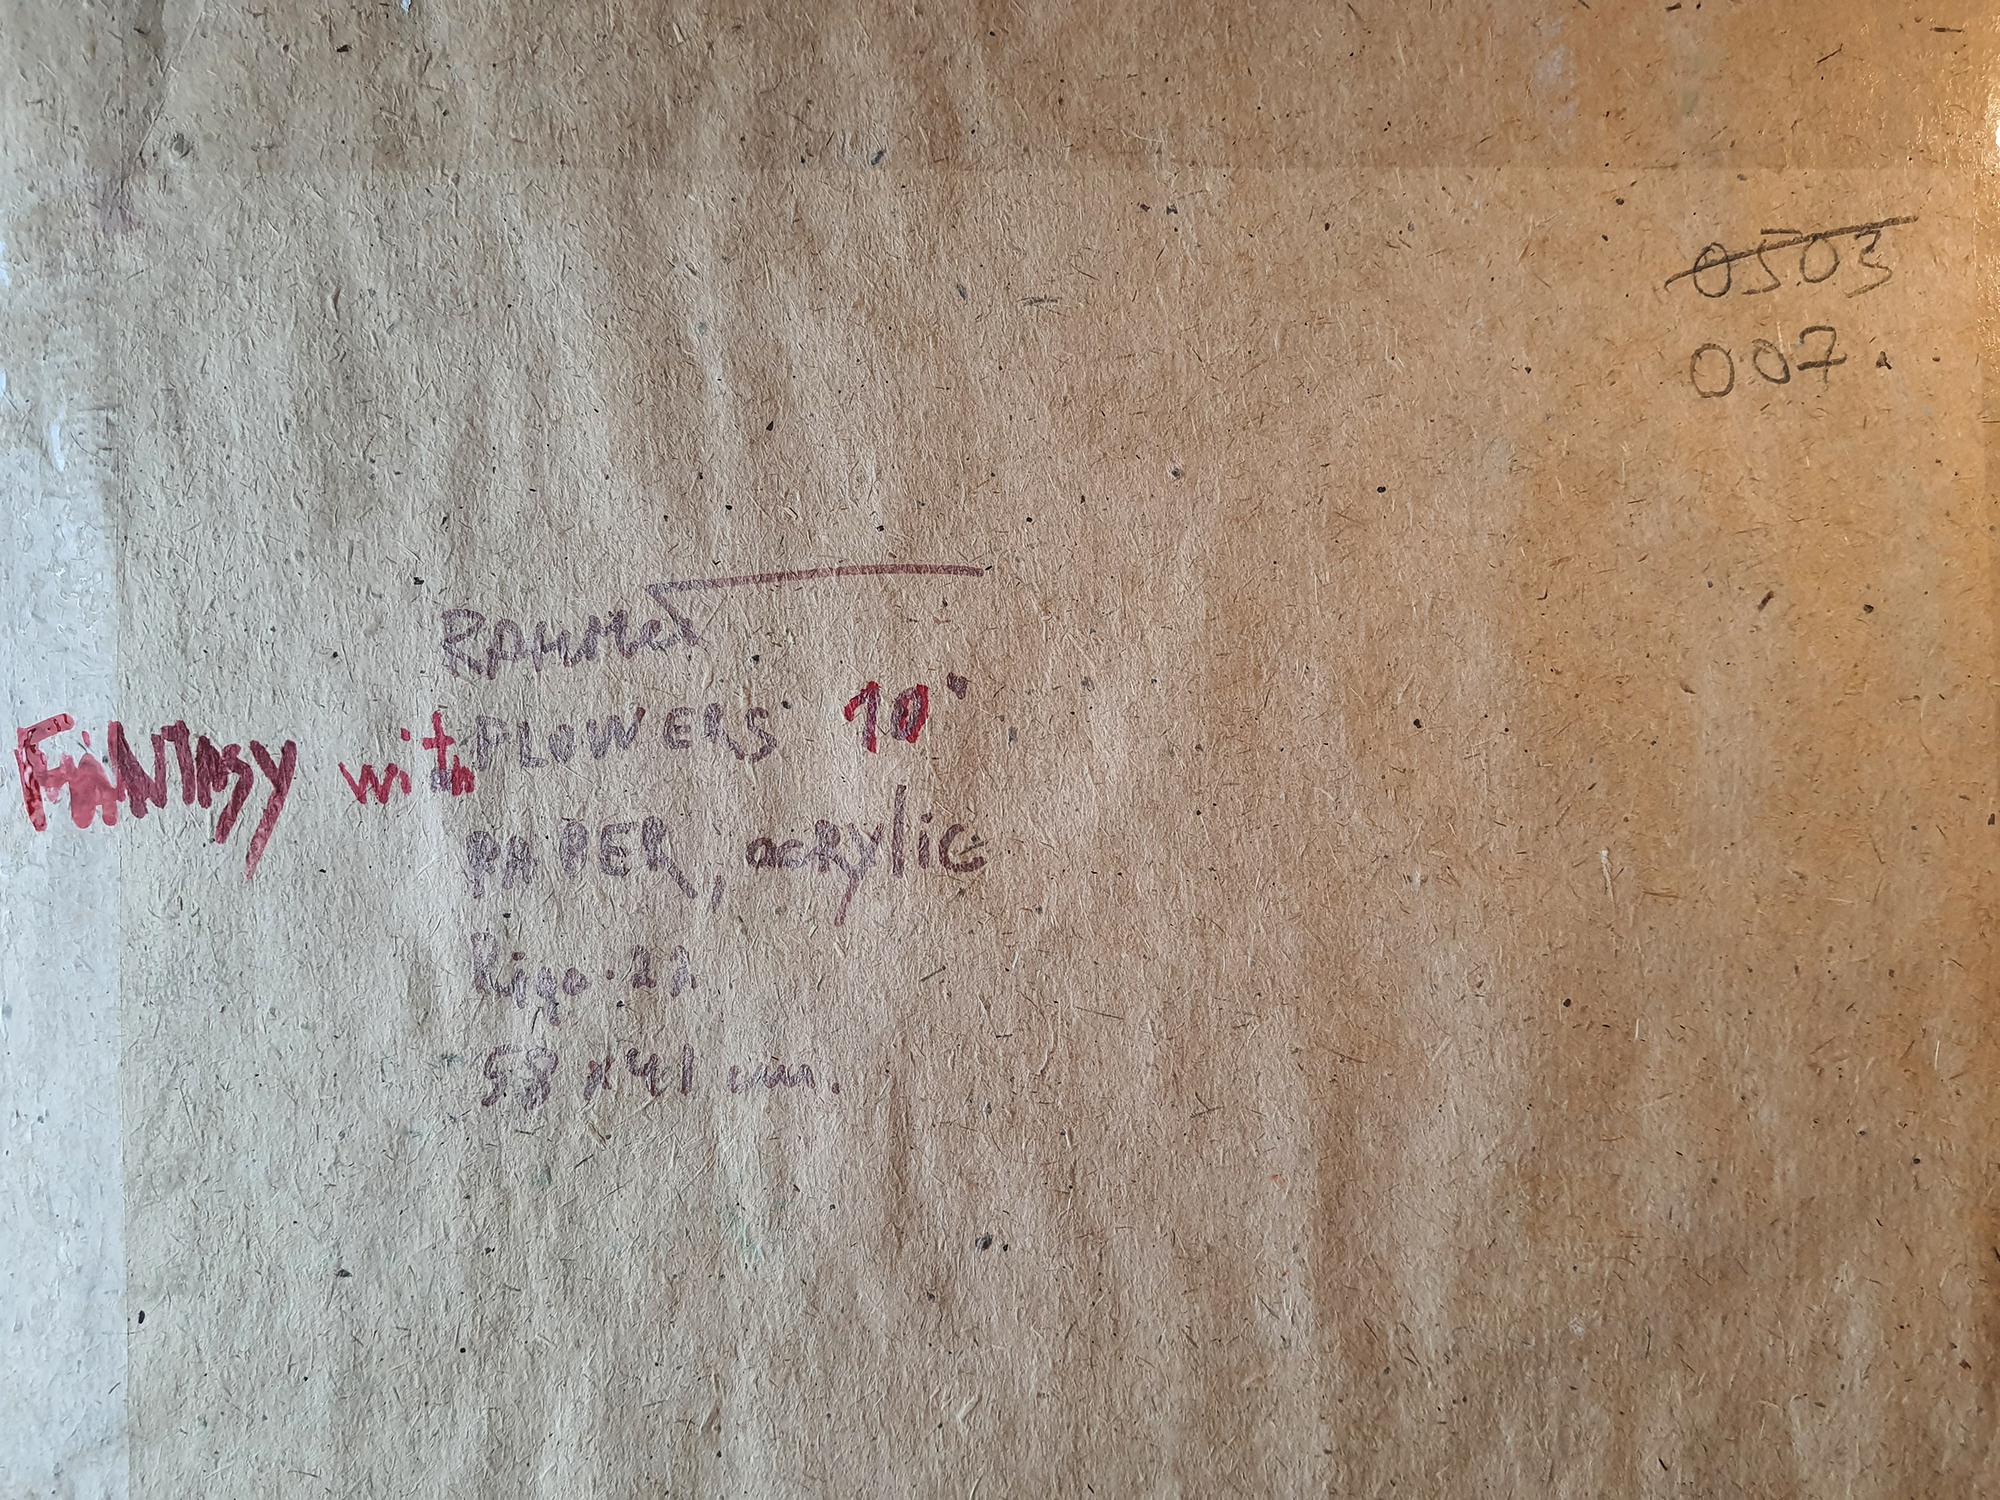 0503
007.
Fantasy with FLOWERS 10"
PAPER, acrylic
Riga. 22
58 x 41 cm.